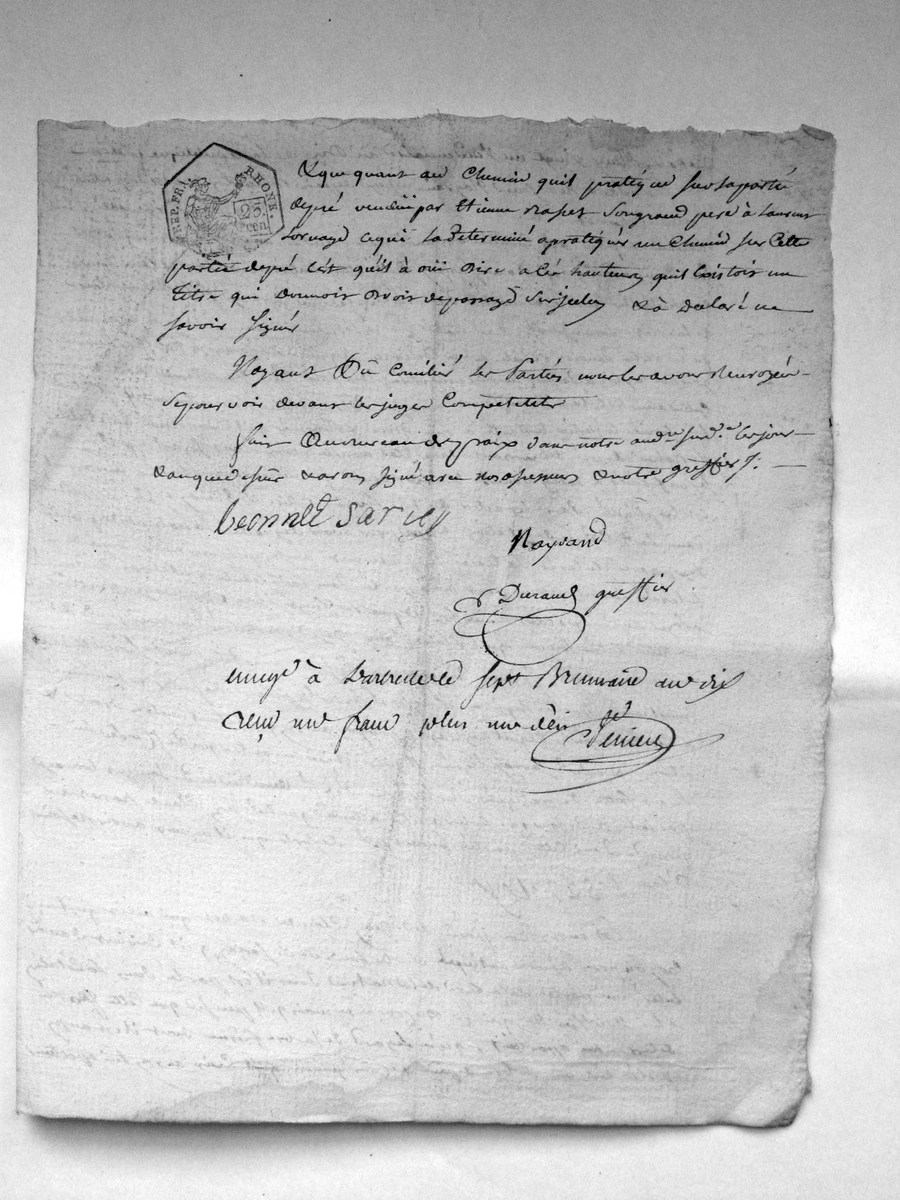 REP. FRA. RHONE.
25 cen
& que quant au chemin quil pratique sur la partie
depré vendue par Etienne son grand pere à Laurent
ce qui la determiné a pratiquer un chemin sur Cette
partie depré c'est qu'il à oui dire a les hauteurs quil Existoit un
titre qui donnoit droit depassage sur & à declaré ne
savoir signer
Nayant Pu Concilier les Parties nous les avons Renvoyér
Sepourvoir devant les juges Competents
fait Au Bureau de paix dans notre les jour
& an que dessus & avons signé avec nos assesseurs & notre greffier
Bonnet Sarcey
Raynand
Durand greffier
à Larbresle le sept Brumaire an dix
Reçu un franc plus un